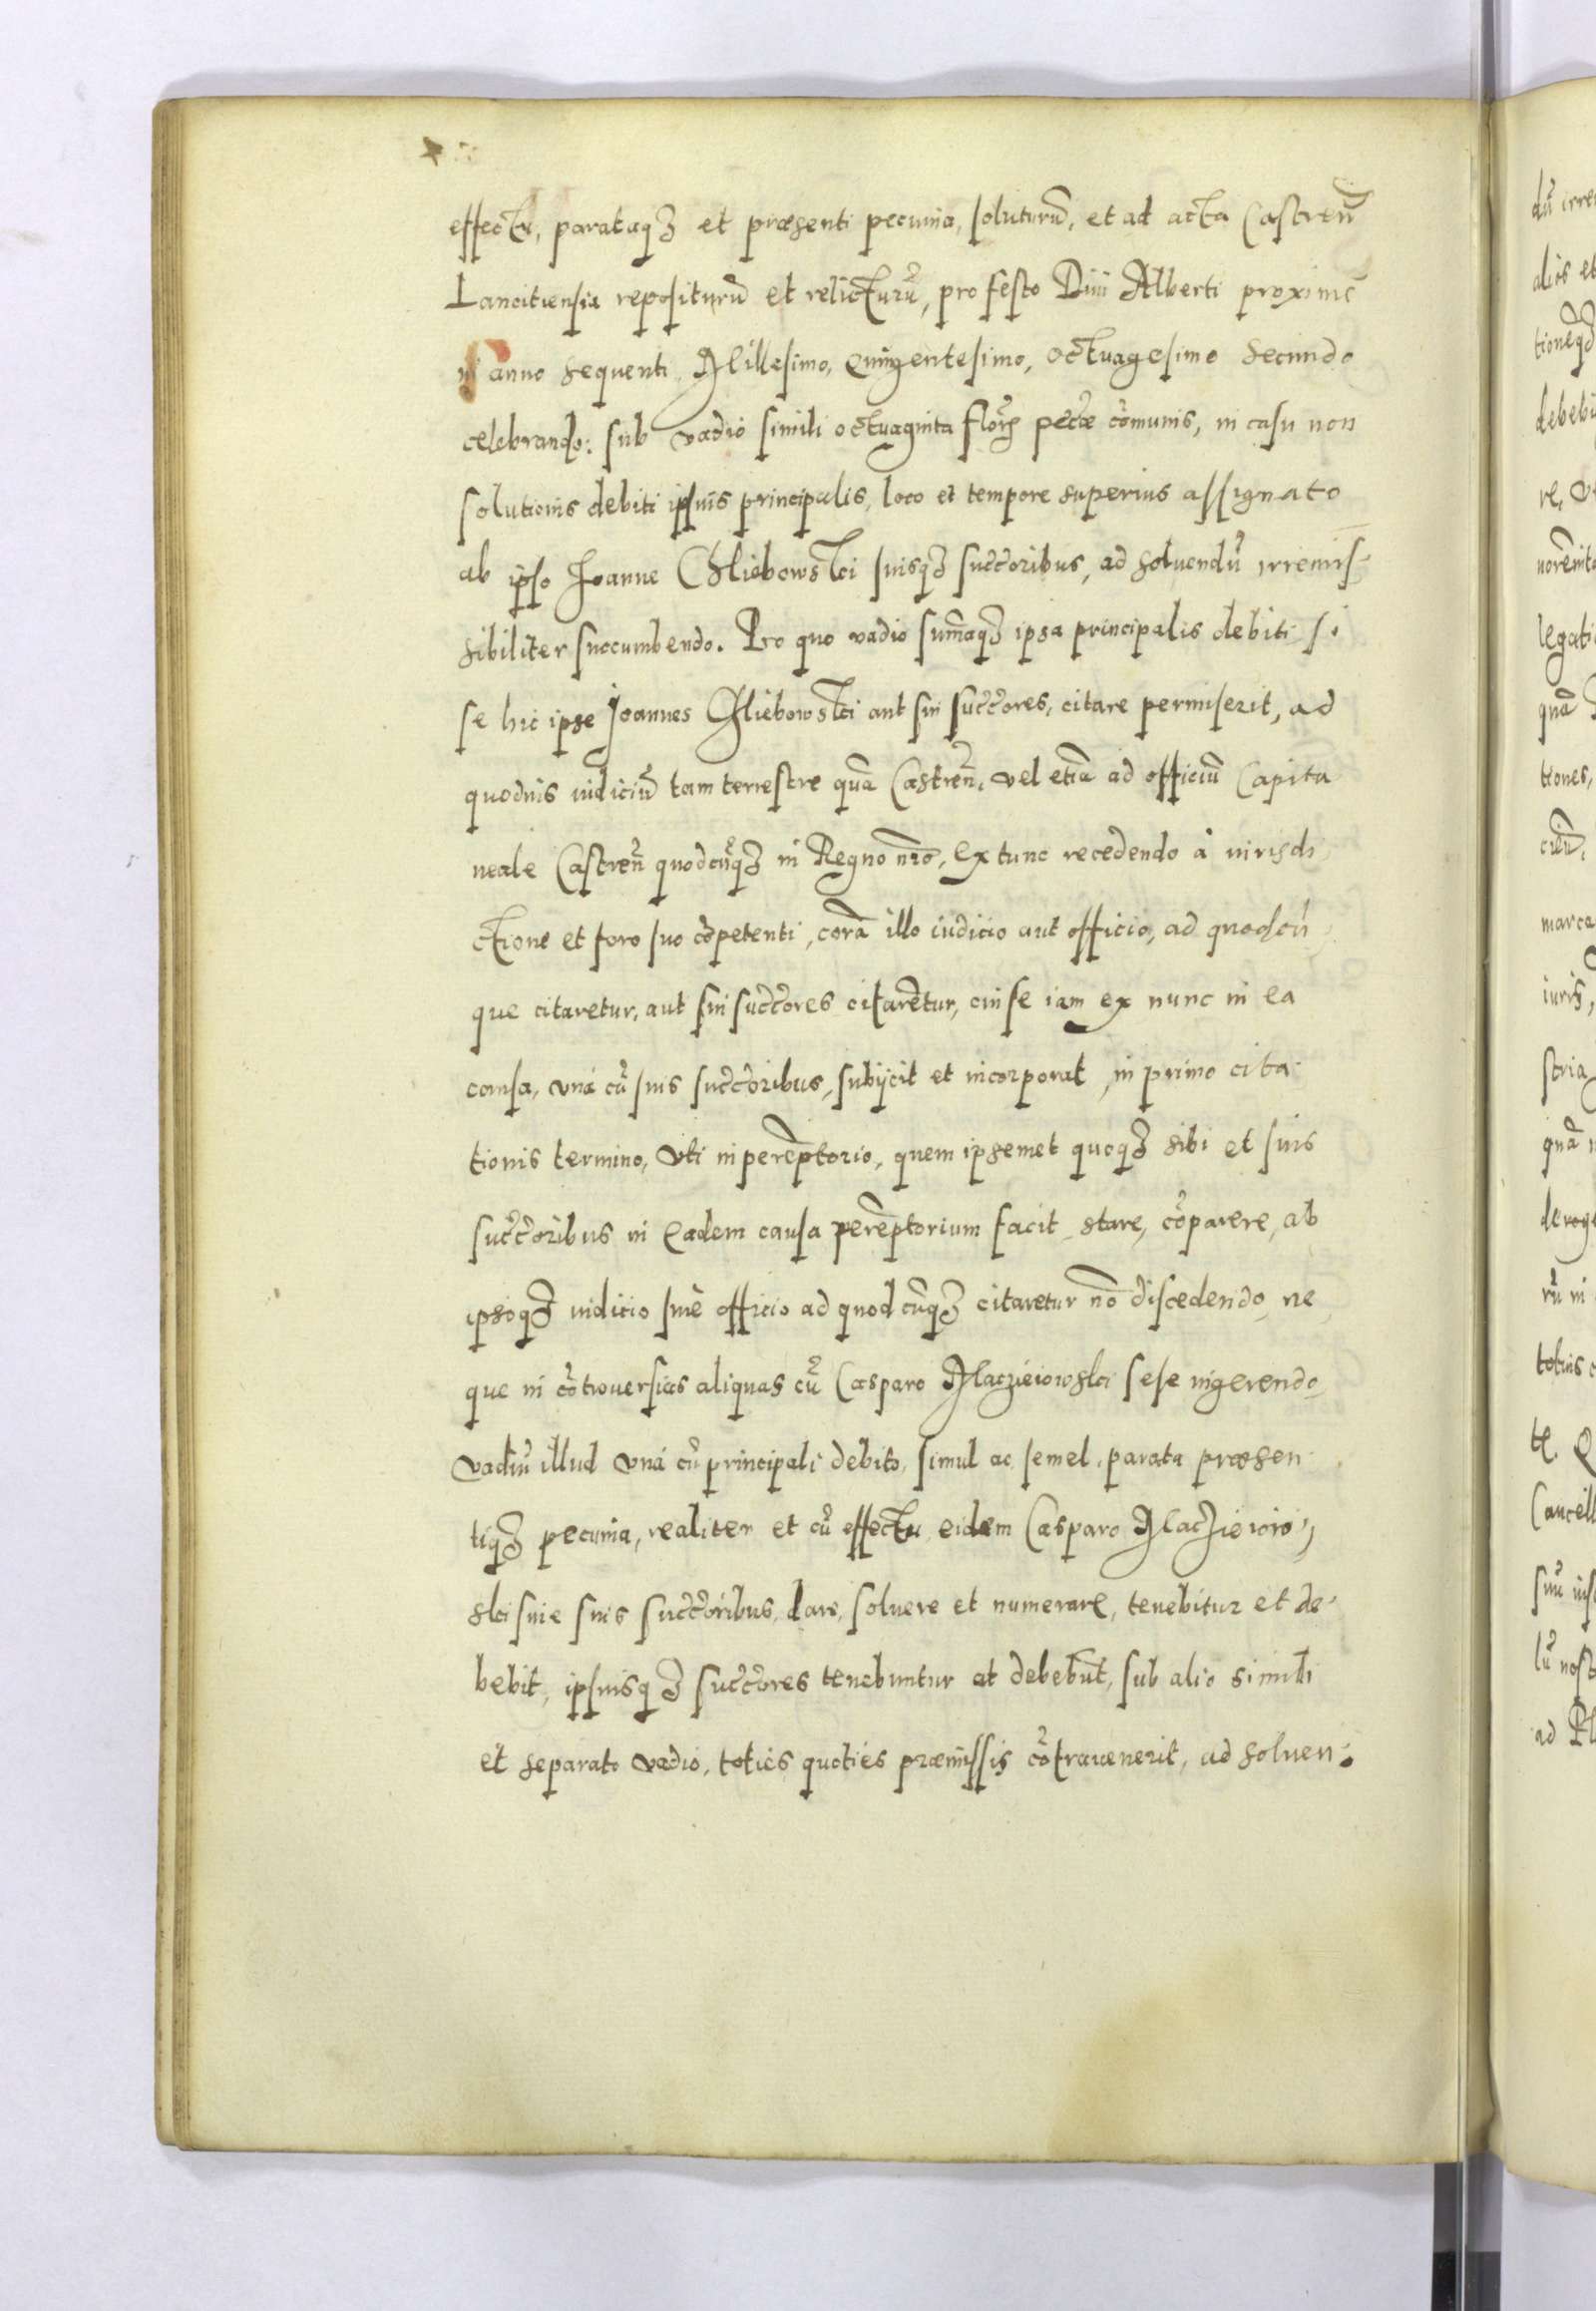 effectu, parataqꝫ et præsenti pecunia, soluturũ, et ad acta Castreñ
Lancitiensia repositurũ et relicturũ, pro festo Diui Alberti proximè
in anno sequenti Millesimo, quingentesimo, octuagesimo secundo
celebrando: sub vadio simili octuaginta florꝫ pecæ cõmunis, in casu non
solutionis debiti ipsius principalis, loco et tempore superius assignato
ab ipso Joanne Chliebowski suisqꝫ succoribus, ad soluendũ irremis-
sibiliter succumbendo. Pro quo vadio sum̃aqꝫ ipsa principalis debiti si
se hic ipse Joannes Chliebowski aut sui succores, citare permiserit, ad
quoduis iudiciũ tam terrestre quã Castreñ, vel etiã ad officiũ Capita
neale Castreñ quodcũqꝫ in Regno nrõ, Ex tunc recedendo à iurisdi
ctione et foro suo cõpetenti, corã illo iudicio aut officio, ad quodcũ
que citaretur, aut sui succores citarẽtur, cui se iam ex nunc in ea
causa, vná cũ suis succoribus, subijcit et incorporat, in primo cita-
tionis termino, Vti in perẽptorio, quem ipsemet quoqꝫ sibi et suis
succoribus in eadem causa perẽptorium facit, stare, cõparere, ab
ipsoqꝫ iudicio siue officio ad quodcũqꝫ citaretur nõ discedendo, ne
que in cõtrouersias aliquas cũ Casparo Maczieiowski sese ingerendo,
vadiũ illud vná cũ principali debito, simul ac semel, parata præsen
tiqꝫ pecunia, realiter et cũ effectu eidem Casparo Maczieiow-
ski siue suis succoribus, dare, soluere et numerare, tenebitur et de-
bebit, ipsiusqꝫ succores tenebuntur et debebũt, sub alio simili
et separato vadio, toties quoties præmissis cõtrauenerit, ad soluen-